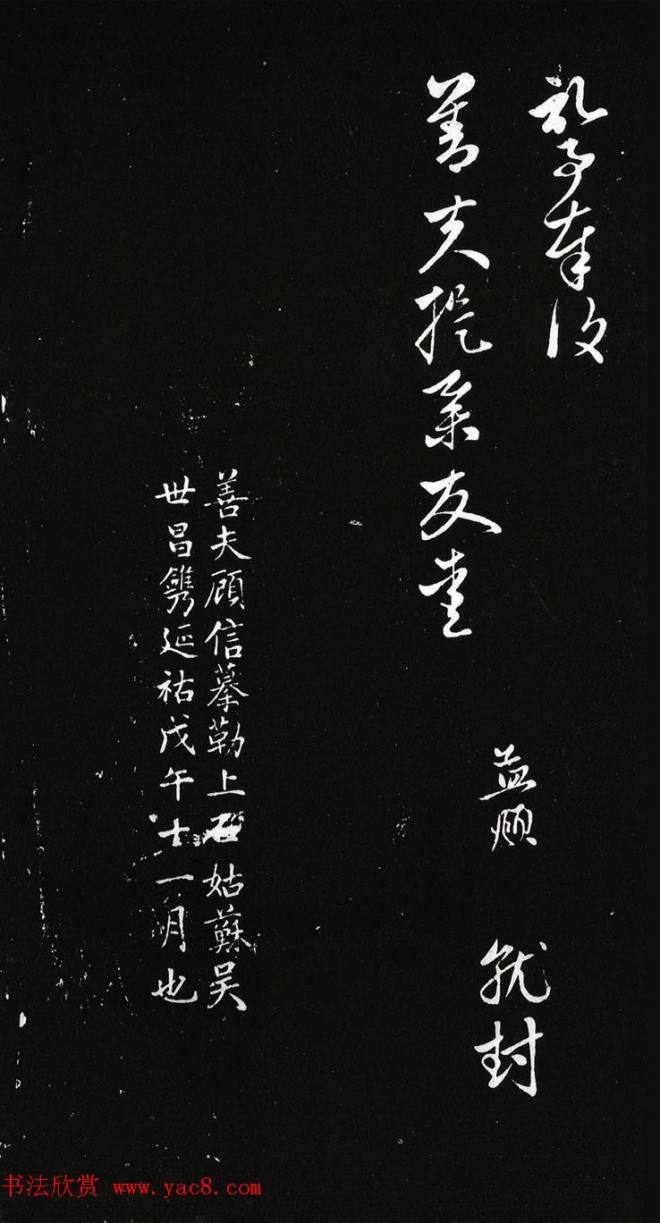 奉復
善夫提友
孟頫 封
善夫顧信摹勒上石姑蘇吳
世昌鐫延祐戊午十一月也
书法欣赏 www.yac8.com